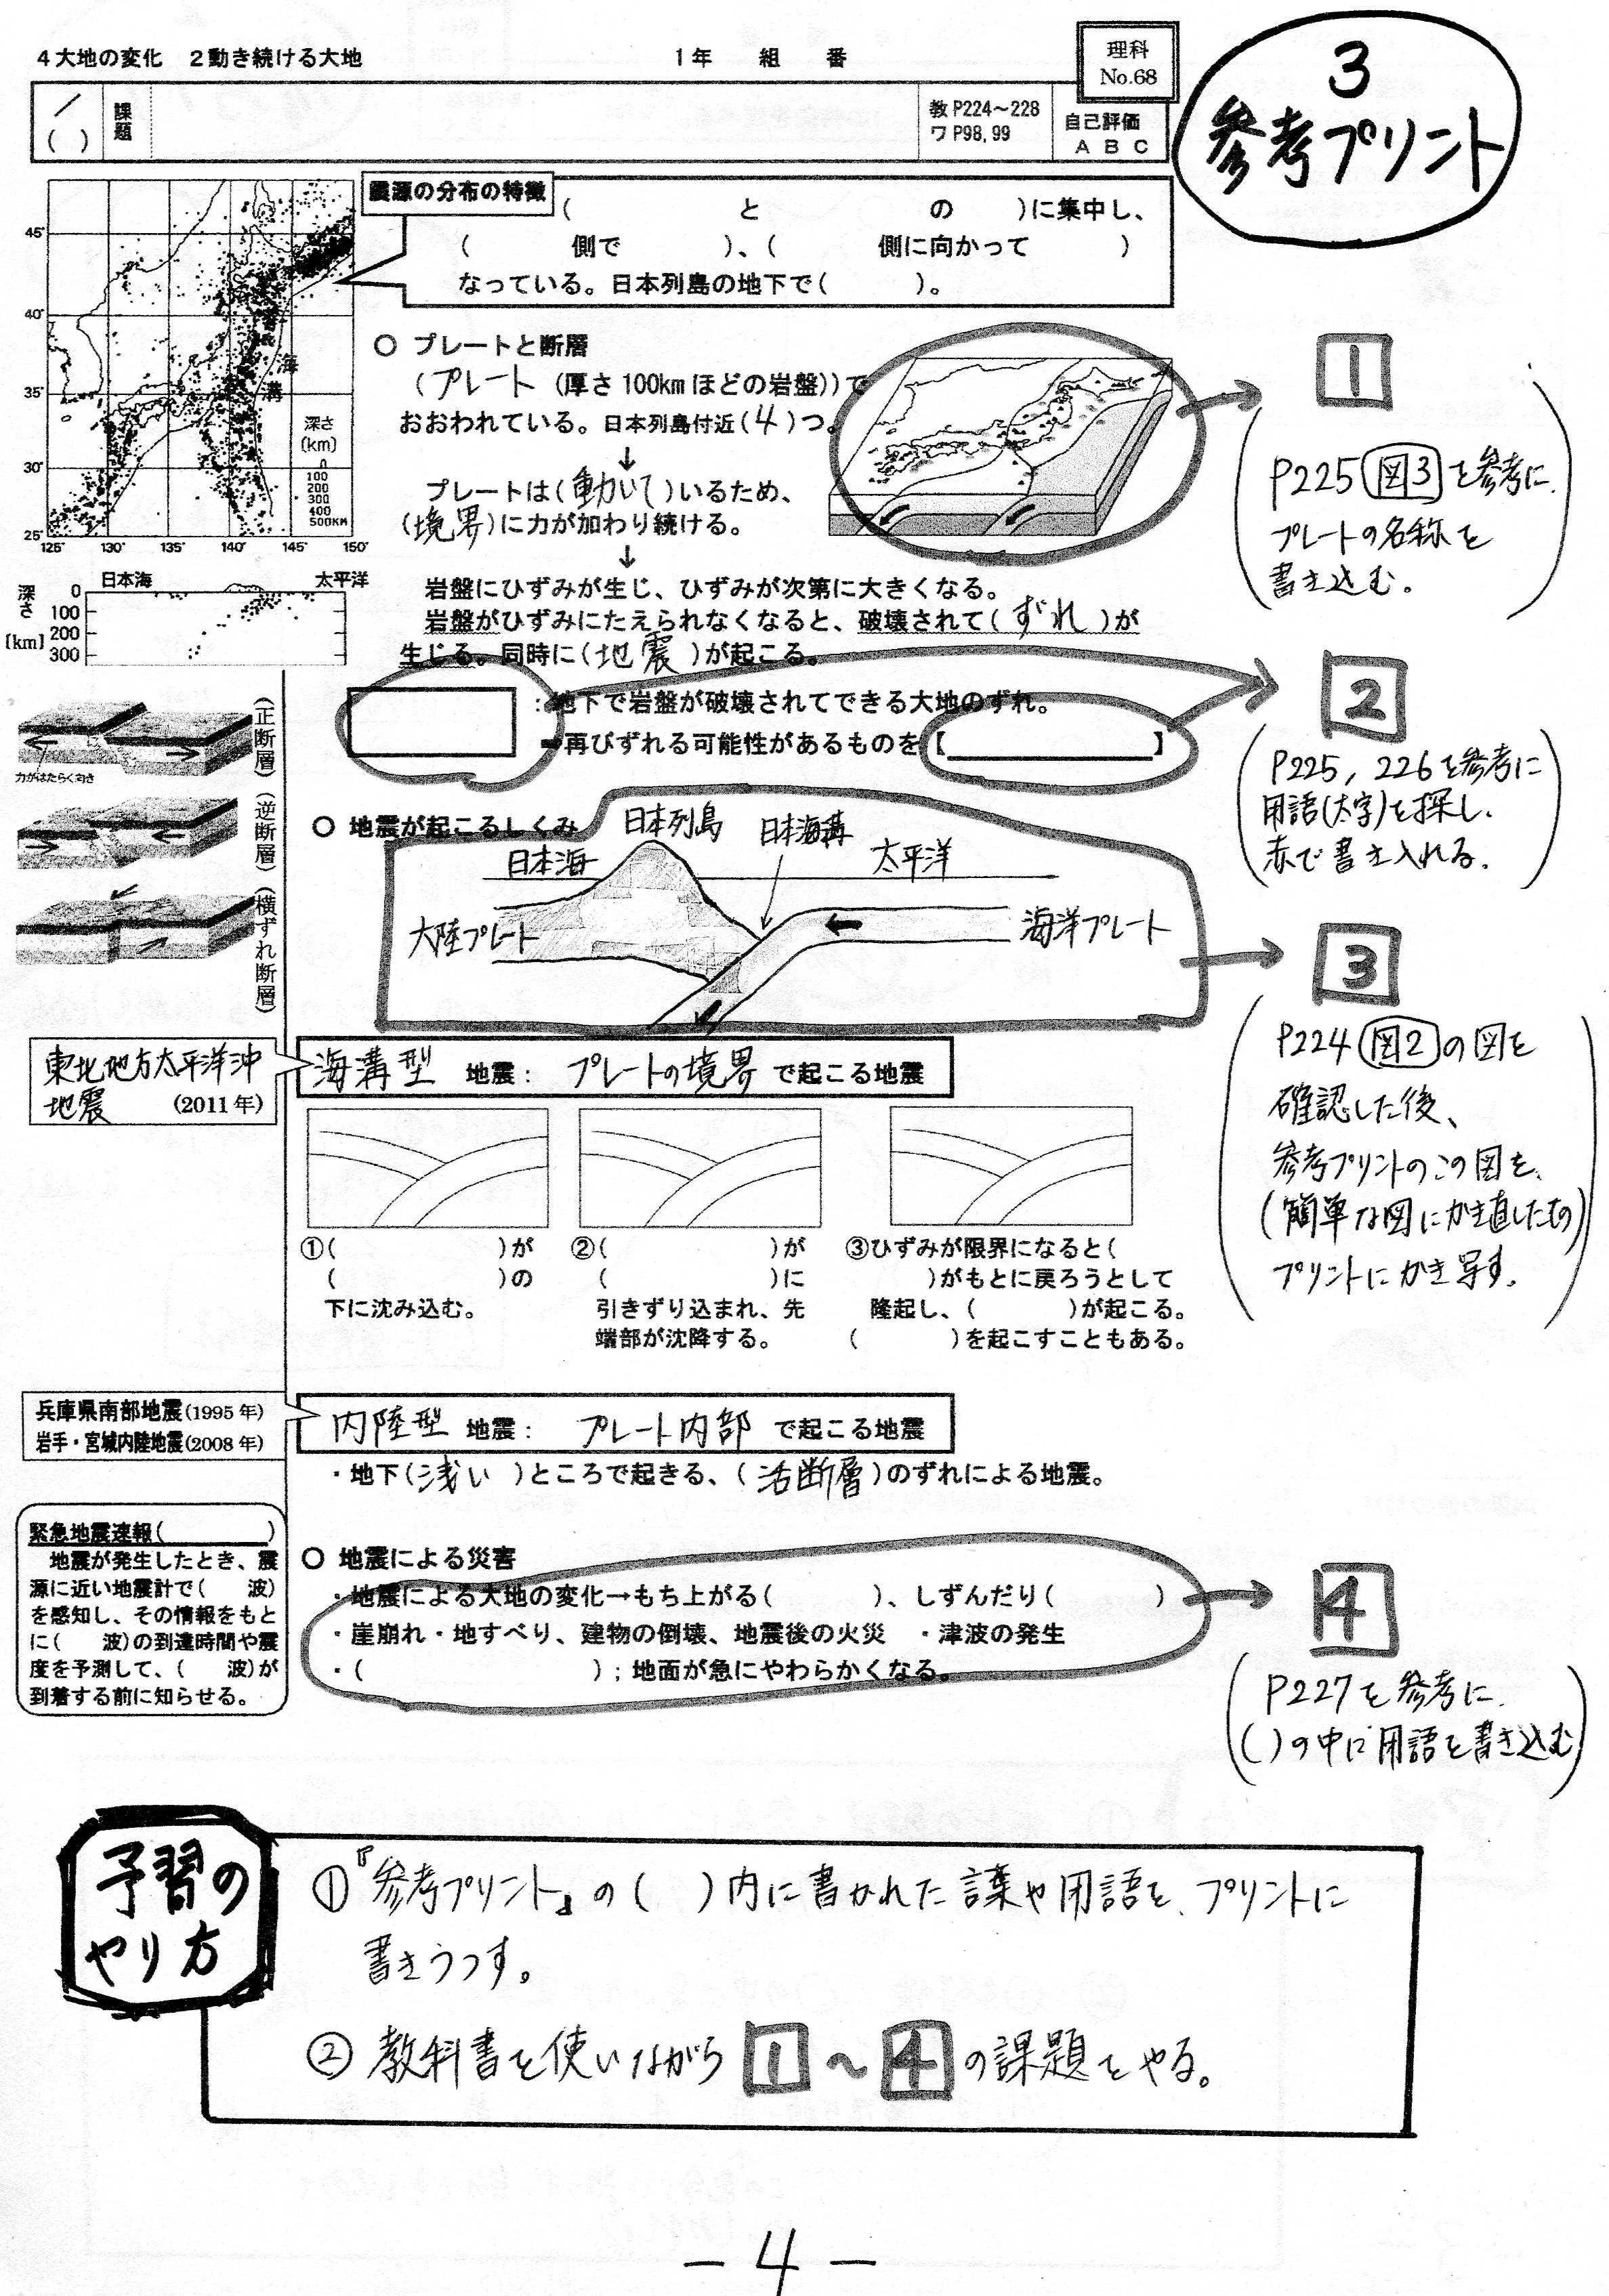 4大地の変化　2動き続ける大地　1年　組　番
理科
No.68
3
参考プリント
／
(　)
課題
教 P224～228
ワ P98,99
自己評価
A B C
震源の分布の特徴
(　　と　　の　　)に集中し、
(　　側で　　)、(　　側に向かって　　)
なっている。日本列島の地下で(　　)。
45°
40°
35°
30°
25°
125° 130° 135° 140° 145° 150°
海溝
深さ
(km)
0
100
200
300
400
500KM
深さ
[km]
日本海　太平洋
0
100
200
300
○ プレートと断層
(プレート (厚さ 100km ほどの岩盤))で
おおわれている。日本列島付近(4)つ。
↓
プレートは(動いて)いるため、
(境界)に力が加わり続ける。
↓
岩盤にひずみが生じ、ひずみが次第に大きくなる。
岩盤がひずみにたえられなくなると、破壊されて(ずれ)が
生じる。同時に(地震)が起こる。
：地下で岩盤が破壊されてできる大地のずれ。
→再びずれる可能性があるものを【　　】
1
P225 図3 を参考に、
プレートの名称を
書き込む。
2
P225, 226を参考に
用語(太字)を探し、
赤で書き入れる。
(正断層)
力がはたらく向き
(逆断層)
(横ずれ断層)
○ 地震が起こるしくみ
日本列島
日本海溝
日本海
太平洋
大陸プレート
海洋プレート
3
P224 図2 の図を
確認した後、
参考プリントのこの図を、
(簡単な図にかき直したもの)
プリントにかき写す。
東北地方太平洋沖
地震　(2011 年)
海溝型　地震：　プレートの境界　で起こる地震
①(　　)が
(　　)の
下に沈み込む。
②(　　)が
(　　)に
引きずり込まれ、先
端部が沈降する。
③ひずみが限界になると(
　　)がもとに戻ろうとして
隆起し、(　　)が起こる。
(　　)を起こすこともある。
兵庫県南部地震(1995 年)
岩手・宮城内陸地震(2008 年)
内陸型　地震：　プレート内部　で起こる地震
・地下(浅い)ところで起きる、(活断層)のずれによる地震。
緊急地震速報(　　)
地震が発生したとき、震
源に近い地震計で(　　波)
を感知し、その情報をもと
に(　　波)の到達時間や震
度を予測して、(　　波)が
到着する前に知らせる。
○ 地震による災害
・地震による大地の変化→もち上がる(　　)、しずんだり(　　)
・崖崩れ・地すべり、建物の倒壊、地震後の火災　・津波の発生
・(　　)；地面が急にやわらかくなる。
4
P227を参考に、
(　)の中に用語を書き込む
予習の
やり方
①『参考プリント』の(　)内に書かれた言葉や用語を、プリントに
書きうつす。
②教科書を使いながら 1 ～ 4 の課題をやる。
－4－